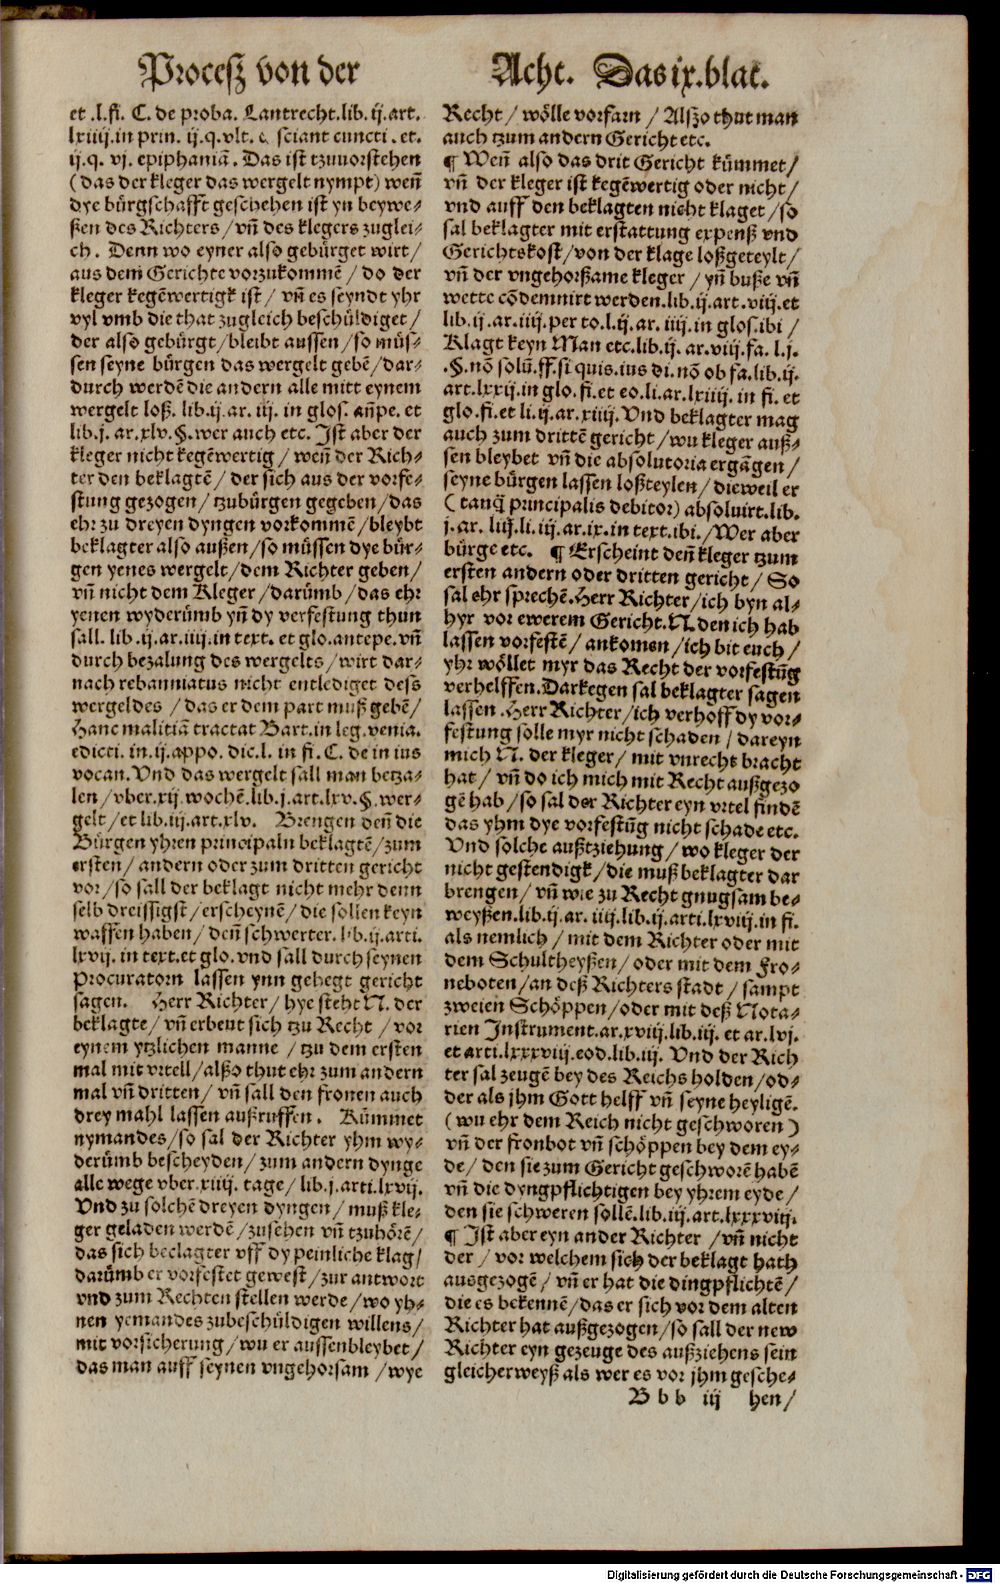 Proceſz von der Acht. Das ix. blat.
et .l. fi. C. de proba. Lantrecht. lib. ij. art.
lxiiij. in prin. ij. q. vlt. c. sciant cuncti . et.
ij. q. vj. epiphaniā. Das ist tzuuorstehen
(das der kleger das wergelt nympt) weñ
dye bürgschafft geschehen ist yn beywe-
ßen des Richters / vñ des klegers zuglei-
ch. Denn wo eyner also gebürget wirt /
aus dem Gerichte vorzukommē / do der
kleger kegēwertigk ist / vñ es seyndt yhr
vyl vmb die that zugleich beschüldiget /
der also gebürgt / bleibt aussen / so müs-
sen seyne bürgen das wergelt gebē / dar-
durch werdē die andern alle mitt eynem
wergelt loß. lib. ij. ar. iij. in glos. añpe. et
lib. j. ar. xlv. §. wer auch etc. Ist aber der
kleger nicht kegēwertig / weñ der Rich-
ter den beklagtē / der sich aus der vorfe-
stung gezogen / tzubürgen gegeben / das
ehr zu dreyen dyngen vorkommē / bleybt
beklagter also außen / so müssen dye bür-
gen yenes wergelt / dem Richter geben /
vñ nicht dem Kleger / darümb / das ehr
yenen wyderümb yñ dy verfestung thun
sall. lib. ij. ar. iiij. in text. et glo. antepe. vñ
durch bezalung des wergelts / wirt dar-
nach rebanniatus nicht entlediget dess
wergeldes / das er dem part muß gebē /
Hanc malitiā tractat Bart. in leg. venia.
edicti. in. ij. appo. dic. l. in fi. C. de in ius
vocan. Vnd das wergelt sall man betza-
len / vber. xij. wochē. lib. j. art. lxv. §. wer-
gelt / et lib. iij. art. xlv. Brengen deñ die
Bürgen yhren principaln beklagtē / zum
ersten / andern oder zum dritten gericht
vor / so sall der beklagt nicht mehr denn
selb dreissigst / erscheynē / die sollen keyn
waffen haben / deñ schwerter. lib. ij. arti.
lxvij. in text. et glo. vnd sall durch seynen
Procuratorn lassen ynn gehegt gericht
sagen. Herr Richter / hye steht N. der
beklagte / vñ erbeut sich tzu Recht / vor
eynem ytzlichen manne / tzu dem ersten
mal mit vrtell / alßo thut ehr zum andern
mal vñ dritten / vñ sall den fronen auch
drey mahl lassen außruffen. Kümmet
nymandes / so sal der Richter yhm wy-
derümb bescheyden / zum andern dynge
alle wege vber. xiiij. tage / lib. j. arti. lxvij.
Vnd zu solchē dreyen dyngen / muß kle-
ger geladen werdē / zusehen vñ tzuhörē /
das sich beclagter vff dy peinliche klag /
darümb er vorfestet gewest / zur antwort
vnd zum Rechten stellen werde / wo yh-
nen yemandes zubeschüldigen willens /
mit vorsicherung / wu er aussenbleybet /
das man auff seynen vngehorsam / wye
Recht / wölle vorfarn / Alßo thut man
auch tzum andern Gericht etc.
¶ Weñ also das drit Gericht kümmet /
vñ der kleger ist kegēwertig oder nicht /
vnd auff den beklagten nicht klaget / so
sal beklagter mit erstattung expenß vnd
Gerichtskost / von der klage loßgeteylt /
vñ der vngehorßame kleger / yñ buße vñ
wette cōdemnirt werden. lib. ij. art. viij. et
lib. ij. ar. iiij. per to. l. ij. ar. iiij. in glos. ibi /
Klagt keyn Man etc. lib. ij. ar. viij. fa. l. j.
.§. nō solū. ff. si quis. ius di. nō ob fa. lib. ij.
art. lxxij. in glo. fi. et eo. li. ar. lxiiij. in fi. et
glo. fi. et li. ij. ar. xiiij. Vnd beklagter mag
auch zum drittē gericht / wu kleger auß-
sen bleybet vñ die absolutoria ergāgen /
seyne bürgen lassen loßteylen / dieweil er
(tanq̄ principalis debitor) absoluirt. lib.
j. ar. liij. li. iij. ar. ix. in text. ibi. / Wer aber
bürge etc. ¶ Erscheint deñ kleger tzum
ersten andern oder dritten gericht / So
sal ehr sprechē. Herr Richter / ich byn al-
hyr vor ewerem Gericht. N. den ich hab
lassen vorfestē / ankomen / ich bit euch /
yhr wöllet myr das Recht der vorfestūg
verhelffen. Darkegen sal beklagter sagen
lassen. Herr Richter / ich verhoff dy vor-
festung solle myr nicht schaden / dareyn
mich N. der kleger / mit vnrecht bracht
hat / vñ do ich mich mit Recht außgezo
gē hab / so sal der Richter eyn vrtel findē
das yhm dye vorfestūg nicht schade etc.
Vnd solche außtziehung / wo kleger der
nicht gestendigk / die muß beklagter dar
brengen / vñ wie zu Recht gnugsam be-
weyßen. lib. ij. ar. iiij. lib. ij. arti. lxviij. in fi.
als nemlich / mit dem Richter oder mit
dem Schultheyßen / oder mit dem Fro-
neboten / an deß Richters stadt / sampt
zweien Schöppen / oder mit deß Nota-
rien Instrument. ar. xviij. lib. iij. et ar. lvj.
et arti. lxxxviij. eod. lib. iij. Vnd der Rich
ter sal zeugē bey des Reichs holden / od-
der als jhm Gott helff vñ seyne heyligē.
(wu ehr dem Reich nicht geschworen)
vñ der fronbot vñ schöppen bey dem ey-
de / den sie zum Gericht geschworē habē
vñ die dyngpflichtigen bey yhrem eyde /
den sie schweren sollē. lib. iij. art. lxxxviij.
¶ Ist aber eyn ander Richter / vñ nicht
der / vor welchem sich der beklagt hath
ausgezogē / vñ er hat die dingpflichtē /
die es bekennē / das er sich vor dem alten
Richter hat außgezogen / so sall der new
Richter eyn gezeuge des außziehens sein
gleicherweyß als wer es vor jhm gesche-
B b b iij hen /
Digitalisierung gefördert durch die Deutsche Forschungsgemeinschaft - DFG